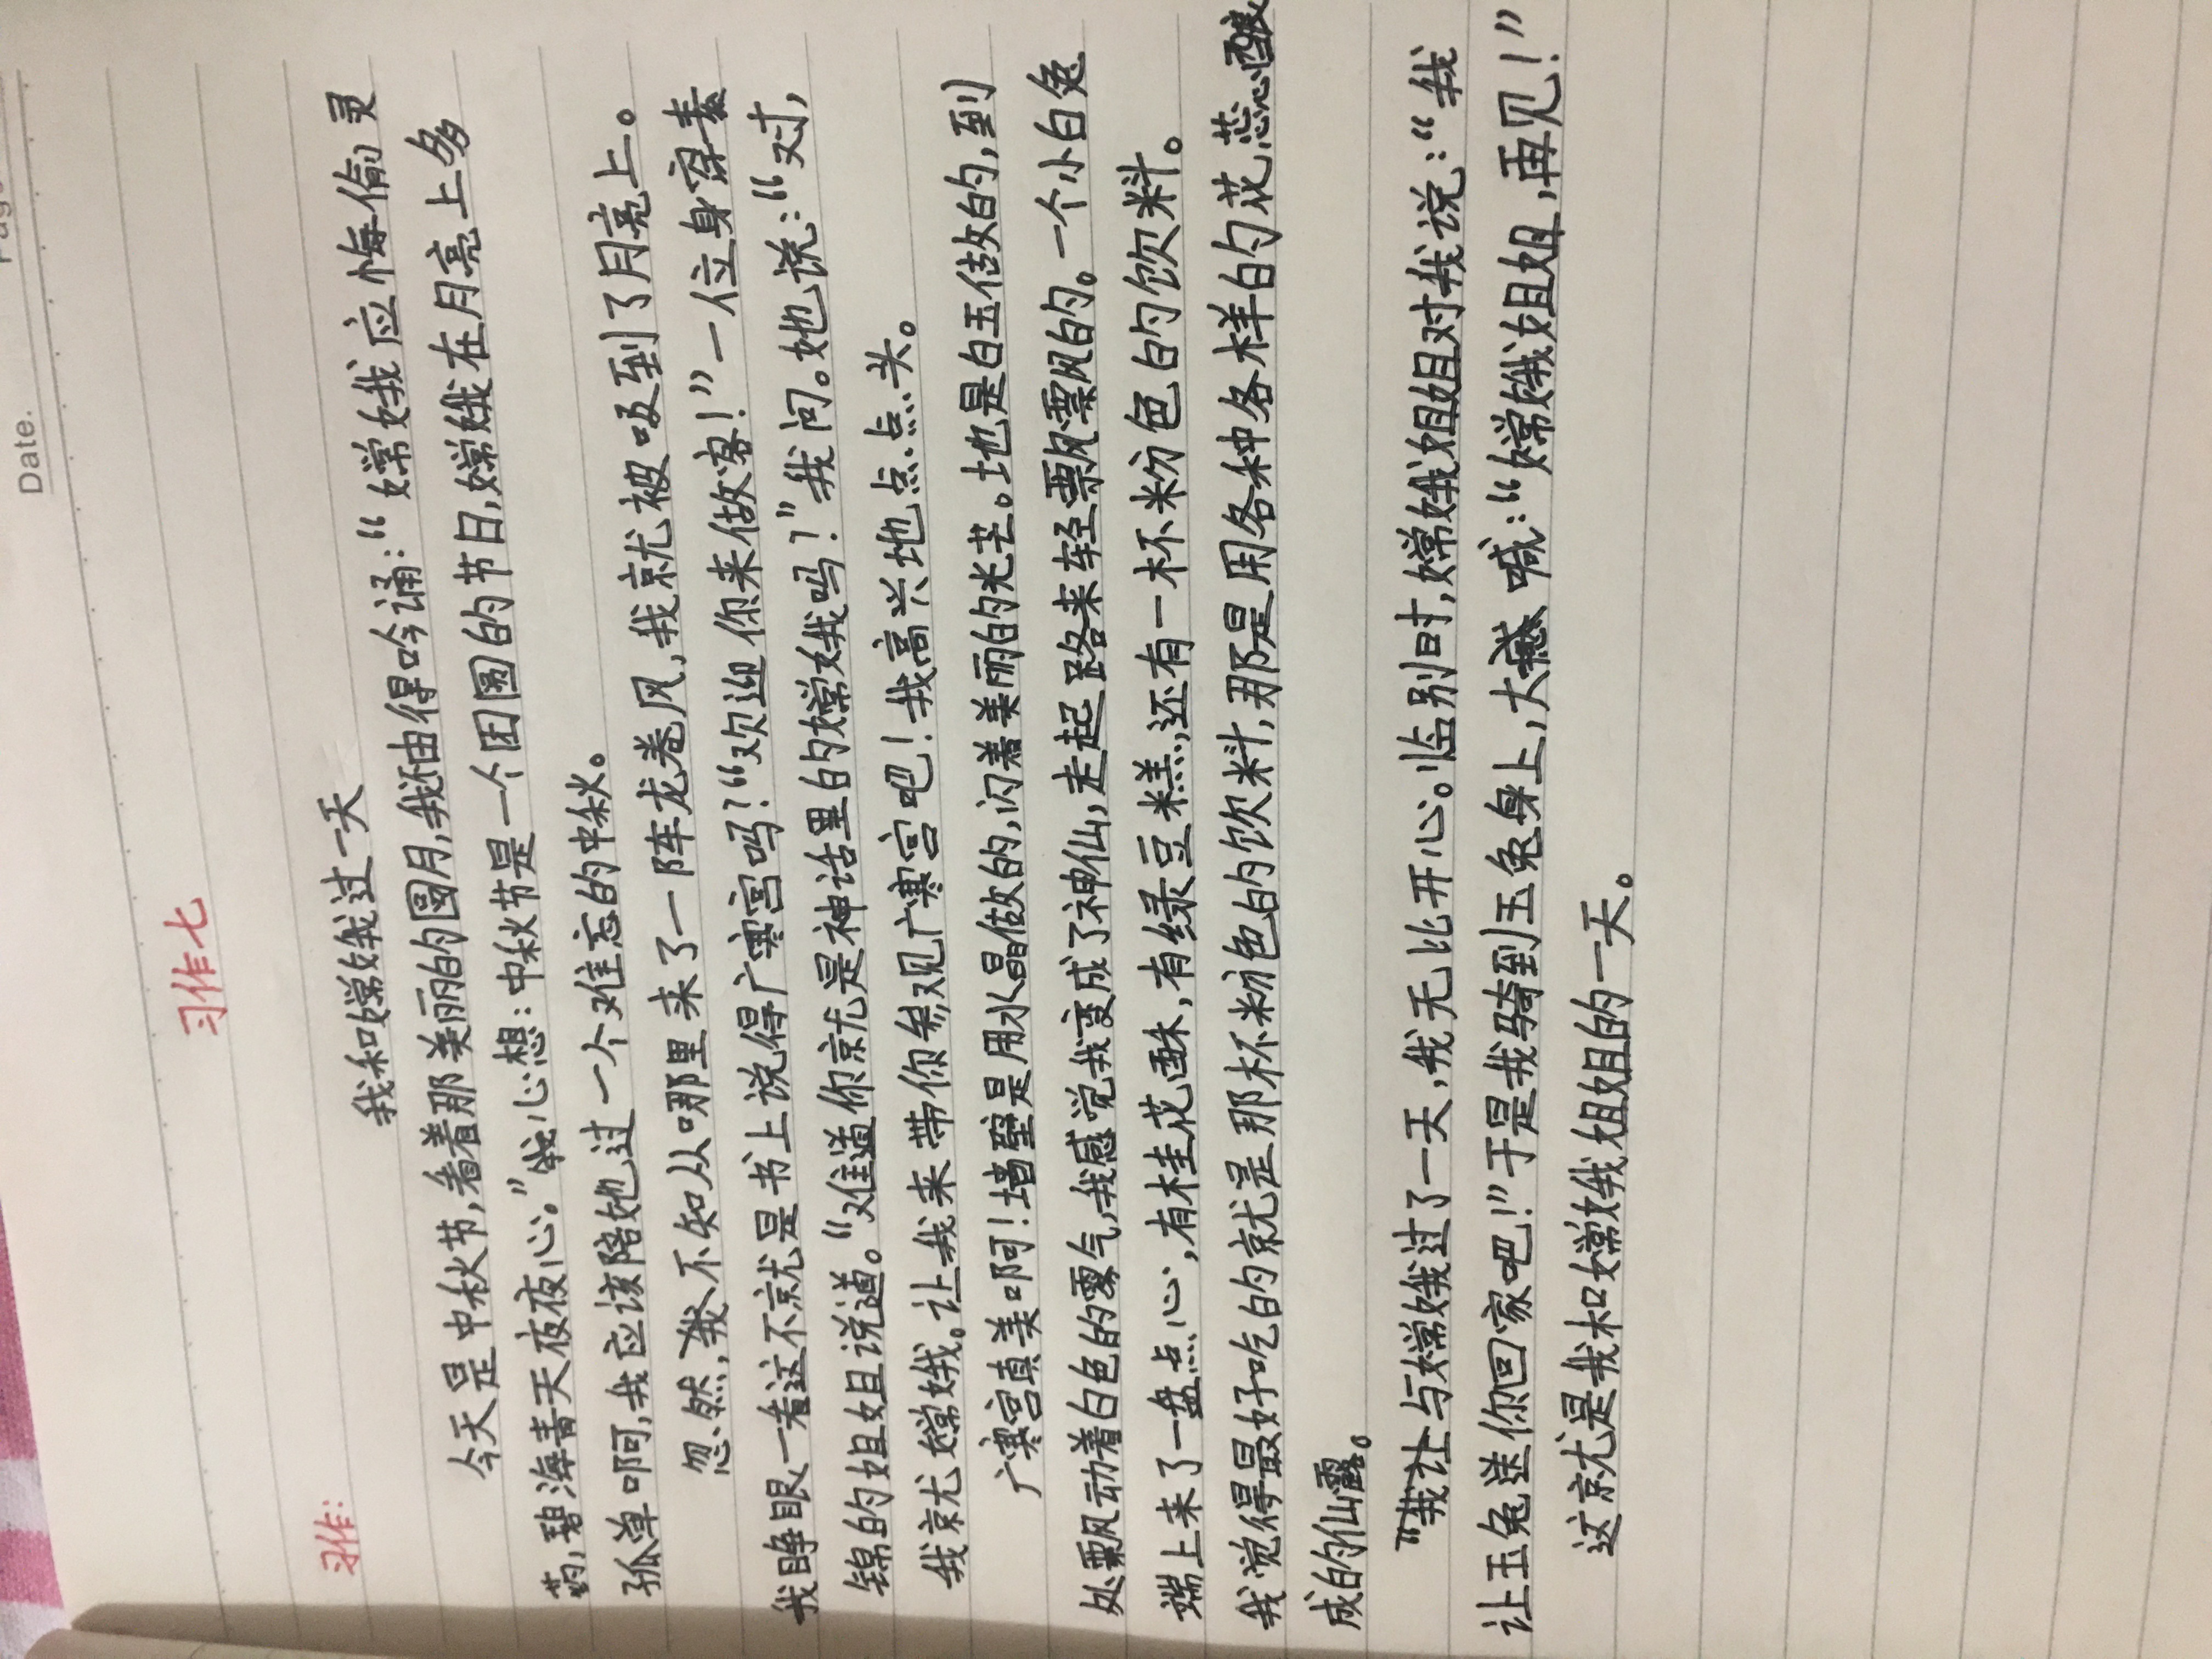 Date.
习作七
习作:
我和嫦娥过一天
今天是中秋节,看着那美丽的圆月,我由得吟诵:“嫦娥应悔偷灵
药,碧海青天夜夜心。”我心想:中秋节是一个团圆的节日,嫦娥在月亮上多
孤单啊,我应该陪她过一个难忘的中秋。
忽然,我不知从哪里来了一阵龙卷风,我就被吸到了月亮上。
我睁眼一看这不就是书上说得广寒宫吗?“欢迎你来做客!”一位身穿素
锦的姐姐说道。“难道你就是神话里的嫦娥吗?”我问。她说:“对,
我就嫦娥。让我来带你参观广寒宫吧!我高兴地点点头。
广寒宫真美啊!墙壁是用水晶做的,闪着美丽的光芒。地是白玉做的,到
处飘动着白色的雾气,我感觉我变成了神仙,走起路来轻飘飘的。一个小白兔
端上来了一盘点心,有桂花酥,有绿豆糕,还有一杯粉色的饮料。
我觉得最好吃的就是那杯粉色的饮料,那是用各种各样的花蕊酿
成的仙露。
我与嫦娥过了一天,我无比开心。临别时,嫦娥姐姐对我说:“我
让玉兔送你回家吧!”于是我骑到玉兔身上,大喊:“嫦娥姐姐,再见!”
这就是我和嫦娥姐姐的一天。